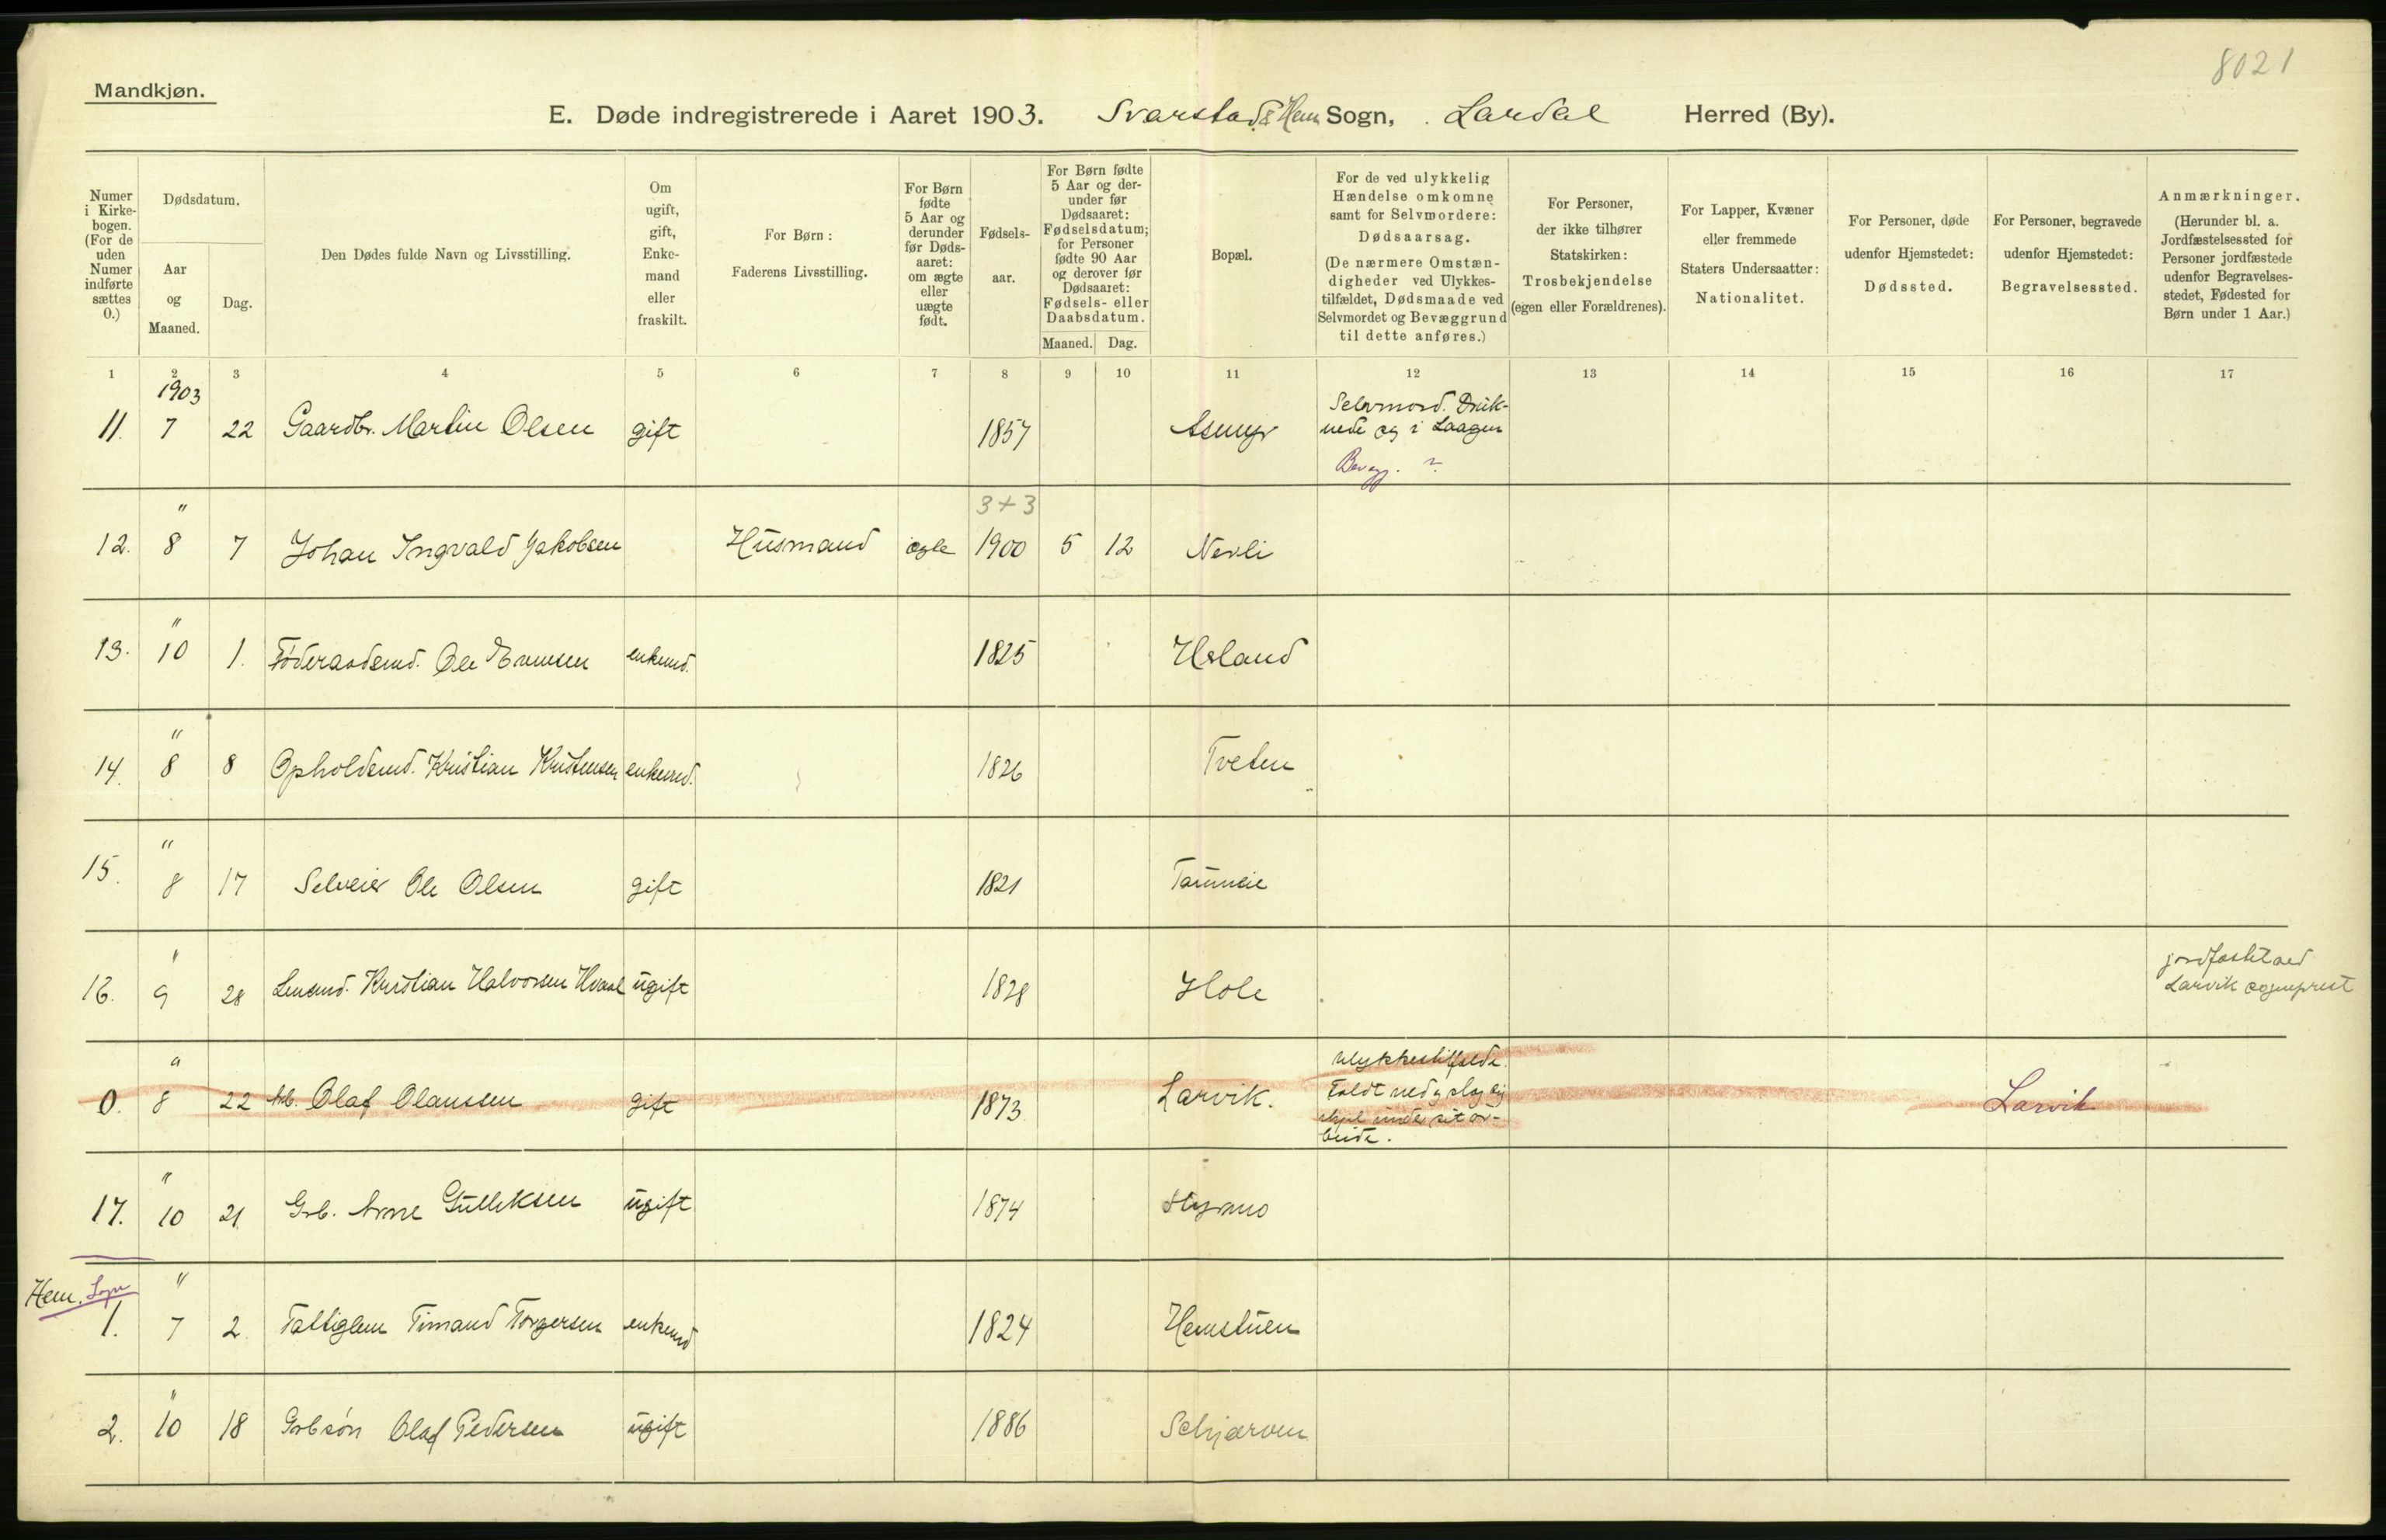 8021
Mandkjøn.
E. Døde indregistrerede i Aaret 1903. Svarstad & Hem Sogn, Lardal Herred (By).
Numer i Kirkebogen. (For de uden Numer indførte sættes 0.)
Dødsdatum.
Aar og Maaned.
Dag.
Den Dødes fulde Navn og Livsstilling.
Om ugift, gift, Enkemand eller fraskilt.
For Børn: Faderens Livsstilling.
For Børn fødte 5 Aar og derunder før Dødsaaret: om ægte eller uægte født.
Fødselsaar.
For Børn fødte 5 Aar og derunder før Dødsaaret: Fødselsdatum; for Personer fødte 90 Aar og derover før Dødsaaret: Fødsels- eller Daabsdatum.
Maaned. Dag.
Bopæl.
For de ved ulykkelig Hændelse omkomne samt for Selvmordere: Dødsaarsag. (De nærmere Omstændigheder ved Ulykkestilfældet, Dødsmaade ved Selvmordet og Bevæggrund til dette anføres.)
For Personer, der ikke tilhører Statskirken: Trosbekjendelse (egen eller Forældrenes).
For Lapper, Kvæner eller fremmede Staters Undersaatter: Nationalitet.
For Personer, døde udenfor Hjemstedet: Dødssted.
For Personer, begravede udenfor Hjemstedet: Begravelsessted.
Anmærkninger. (Herunder bl. a. Jordfæstelsessted for Personer jordfæstede udenfor Begravelsesstedet, Fødested for Børn under 1 Aar.)
1 2 3 4 5 6 7 8 9 10 11 12 13 14 15 16 17
1903
11. 7 22 Gaardbr. Martin Olsen gift 1857 Selvmord. Druknede sig i Laagen
Bevægg. ?
3+3
12. " 8 7 Johan Ingvald Jakobsen Husmand ægte 1900 5 12 Nevli
13. " 10 1. Føderaadsmd. Ole Evensen enkemd. 1825 Høland
14. " 8 8 Opholdsmd. Kristian Kristensen enkemd. 1826 Tveten
15. " 8 17 Selveier Ole Olsen gift 1821
16. " 9 28 Lensmd. Kristian Halvorsen Hvaal ugift 1828 Hole jordfæstet ved Larvik sogneprest
0. " 8 22 Arb. Olaf Olaussen gift 1873 Larvik. Ulykkestilfælde. Faldt ned og slog sig ihjel under sit arbeide. Larvik
17. " 10 21. Grb. Arne Gulliksen ugift 1874 Styrmo
Hem. Sogn
1. " 7 2. Fattiglem Timand Torgersen enkemd 1824 Hemstuen
2. " 10 18 Grbsøn Olaf Pedersen ugift 1886 Schjærven